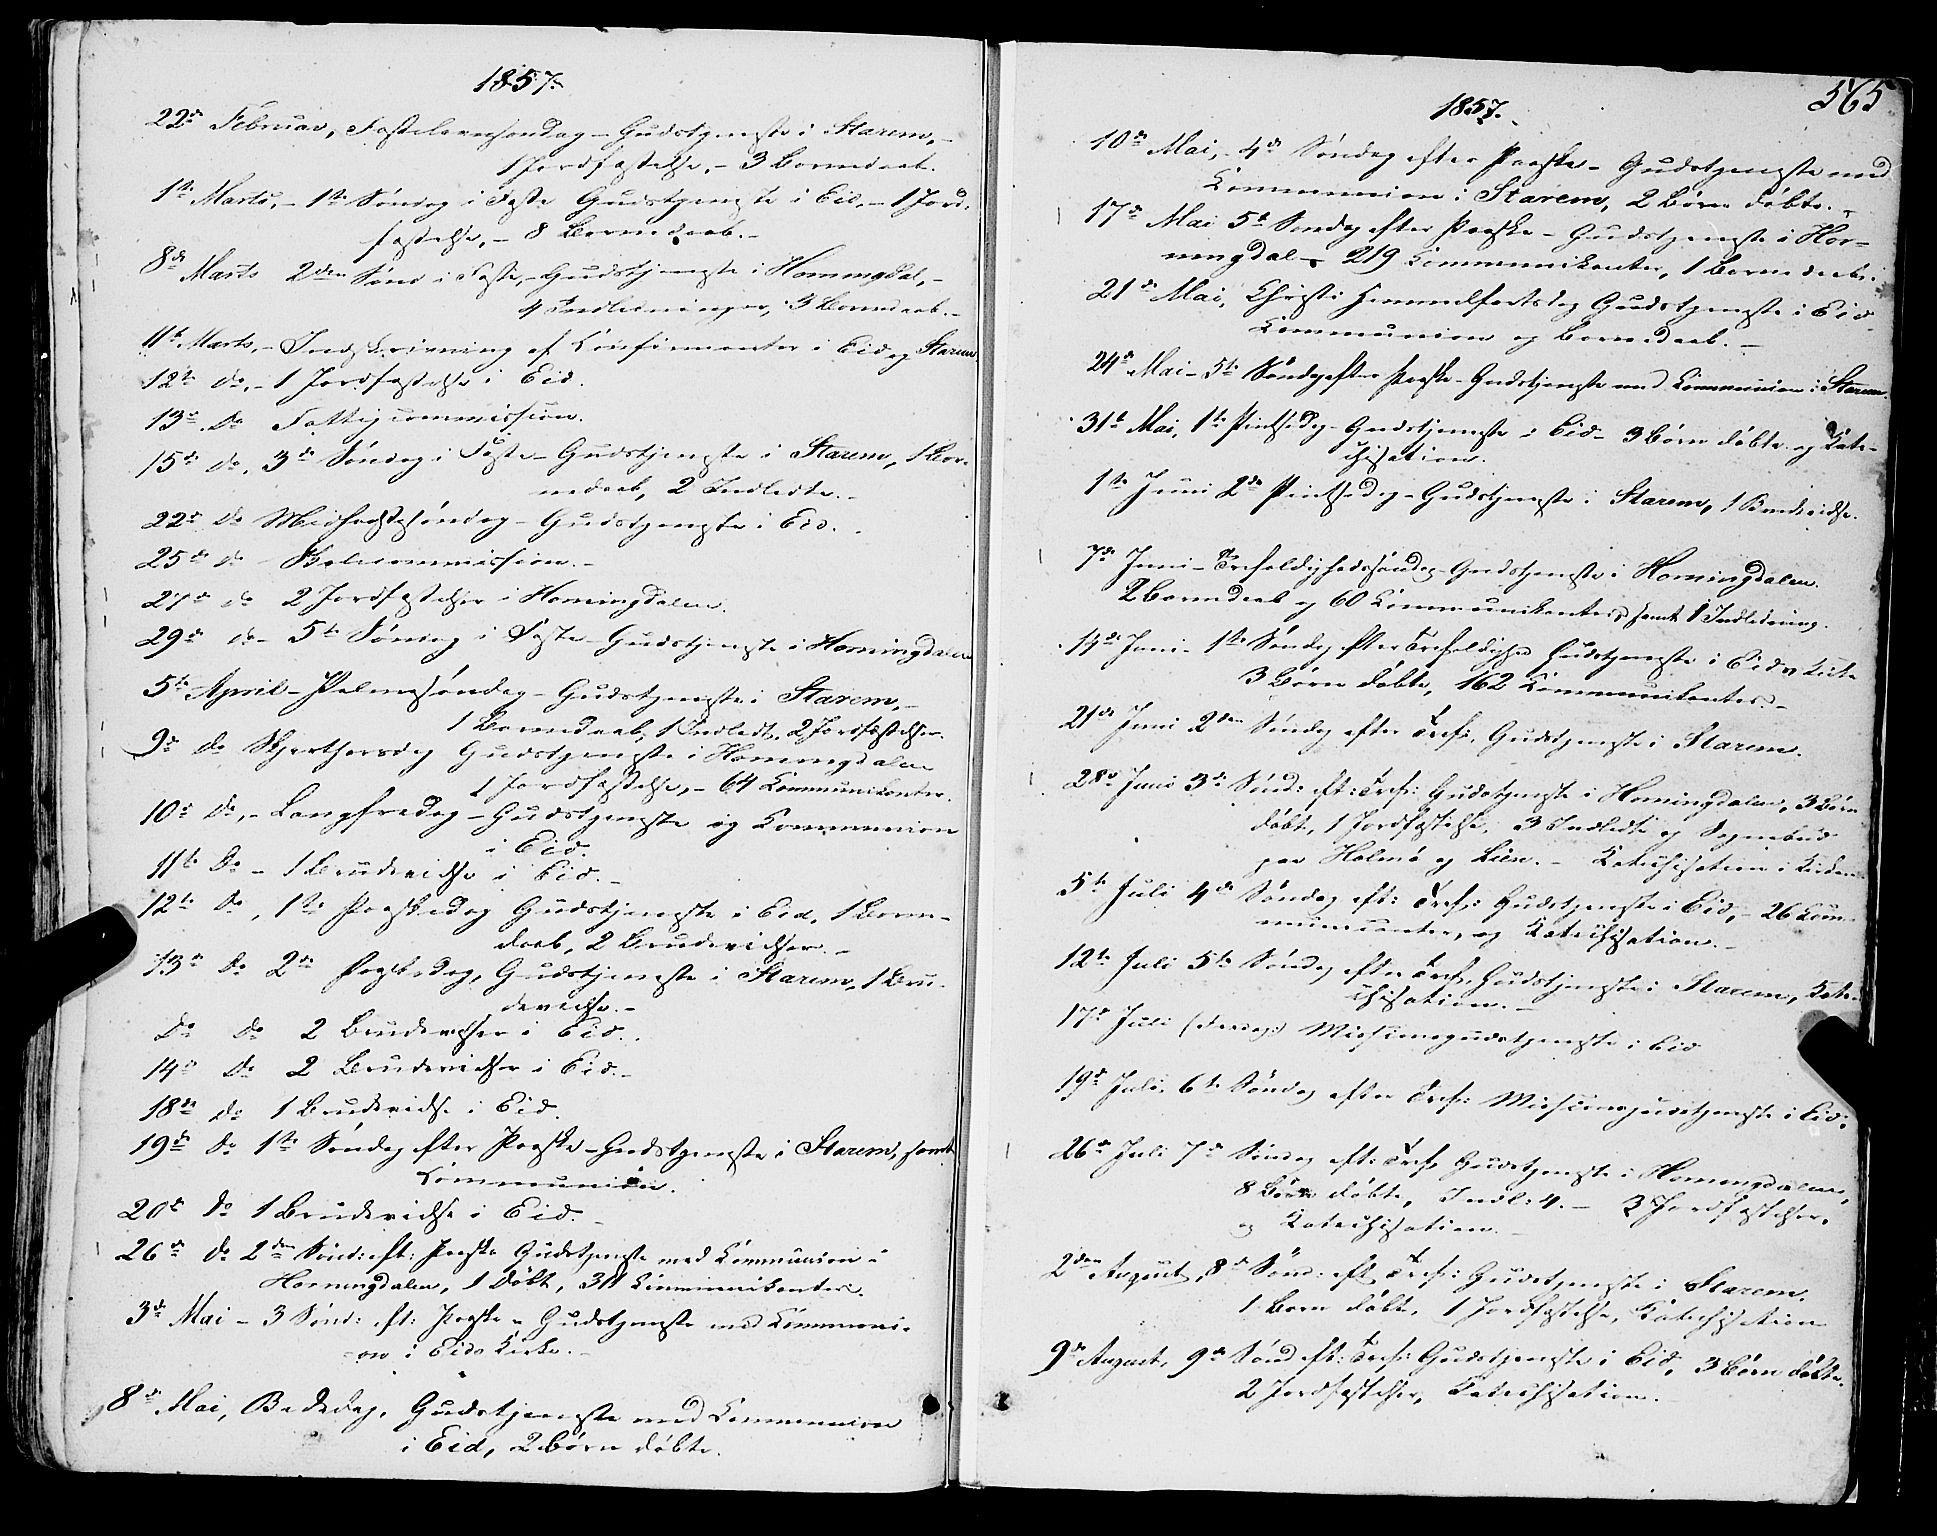 1857.
22de Februar, Fastelavnsøndag - Gudstjeneste i Starem, -
1 Jordfæstelse, - 3 Barnedaab.
1ste Marts, - 1ste Søndag i Faste Gudstjeneste i Eid, - 1 Jord-
fæstelse, - 8 Barnedaab. -
8de Marts 2den Sønd i Faste, - Gudstjeneste i Horningdal, -
4 Indledninger, 3 Barnedaab. -
11te Marts, - Indskrivning af Confirmanter i Eid og Starem
12te do, - 1 Jordfæstelse i Eid.
13de do Fattigcommission.
15de do, 3de Søndag i Faste - Gudstjeneste i Starem, 1 Bar-
nedaab, 2 Indledte. -
22de do Midfastesøndag - Gudstjeneste i Eid.
25de do Skolecommission. -
27de do 2 Jordfæstelser i Horningdalen.
29de do - 5te Søndag i Faste - Gudstjeneste i Horningdalen
5te April - Palmesøndag - Gudstjeneste i Starem, -
1 Barnedaab, 1 Indledt, 2 Jordfæstelser.
9de do Skjærthorsdag Gudstjeneste i Horningdalen
1 Jordfæstelse, - 64 Kommunikanter.
10de do, - Langfredag - Gudstjeneste og Kommunion
i Eid.
11te do - 1 Brudevielse i Eid. -
12te do, 1ste Paaskedag Gudstjeneste i Eid, 1 Barne-
daab, 2 Brudevielser. -
13de do 2de Paaskedag, Gudstjeneste i Starem, 1 Bru-
devielse. -
do do 2 Brudevielser i Eid.
14de do 2 Brudevielser i Eid. -
18de do 1 Brudevielse i Eid.
19de do 1ste Søndag efter Paaske - Gudstjeneste i Starem, samt
Communion.
20de do 1 Brudevielse i Eid. -
26de do 2den Sønd: eft: Paaske Gudstjeneste med Communion i
Horningdalen, 1 Døbt, 311 Communikanter.
3de Mai - 3 Sønd: eft: Paaske - Gudstjeneste med Communi-
on i Eids Kirke. -
8de Mai, Bededag, Gudstjeneste med Communion
i Eid, 2 Børn døbte.
565
1857.
10de Mai, - 4de Søndag efter Paaske - Gudstjeneste med
Communion i Starem, 2 Børn døbte. -
17de Mai 5te Søndag efter Paaske - Gudstjeneste i Hor-
ningdal - 219 Communikanter, 1 Barnedaab.
21de Mai, Christi Himmelfartsdag Gudstjeneste i Eid
Communion og Barnedaab. -
24de Mai - 5te Søndag efter Paaske - Gudstjeneste med Communion i Starem.
31te Mai, 1ste Pintsedag - Gudstjeneste i Eid - 3 Børn døbte og Kate-
chisation.
1ste Juni 2de Pintsedag - Gudstjeneste i Starem, 1 Brudevielse.
7de Juni - Trefoldighedssøndag Gudstjeneste i Horningdalen.
2 Barnedaab og 60 Communikanter, samt 1 Indledning.
14de Juni - 1ste Søndag efter Trefoldighed Gudstjeneste i Eids Kirke
3 Børn døbte, 162 Communikanter. -
21de Juni 2den Søndag efter Tref: Gudstjeneste i Starem.
28de Juni 3de Sønd: eft: Tref: Gudstjeneste i Horningdalen, 3 Børn
døbt, 1 Jordfæstelse, 3 Indledte og Sognebud
paa Holmø og Lien. - Katechisation i Kirken
5te Juli 4de Søndag eft: Tref: Gudstjeneste i Eid, - 26 Com-
municanter, og Katechisation. -
12te Juli 5te Søndag efter Tref, Gudstjeneste i Starem, Kate-
chisation. -
17de Juli (Fredag) Missionsgudstjeneste i Eid
19de Juli, 6te Søndag efter Tref: Missionsgudstjeneste i Eid.
26de Juli 7de Søndag eft: Tref, Gudstjeneste i Horningdalen,
8 Børn døbte, Indl: 4. - 3 Jordfæstelser,
og Katechisation. -
2den August, 8de Sønd: eft Tref: Gudstjeneste i Starem.
1 Barn døbt, 1 Jordfæstelse, Catechisation
9de August, 9de Sønd eft: Tref: Gudstjeneste i Eid, 3 Børn døbte.
2 Jordfæstelser, Catechisation.